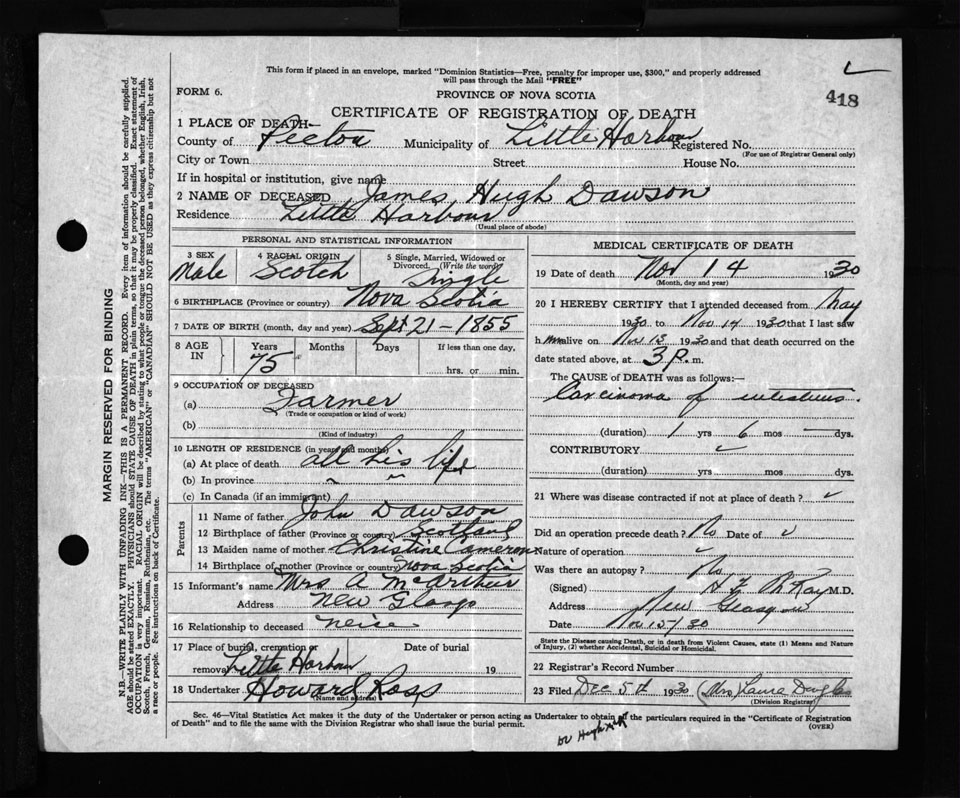 This form if placed in an envelope, marked "Dominion Statistics—Free, penalty for improper use, $300," and properly addressed
will pass through the Mail "FREE"
418
FORM 6.
PROVINCE OF NOVA SCOTIA
CERTIFICATE OF REGISTRATION OF DEATH
1 PLACE OF DEATH—
County of Pictou Municipality of Little Harbour Registered No.
(For use of Registrar General only)
City or Town Street House No.
If in hospital or institution, give name
2 NAME OF DECEASED James Hugh Dawson
Residence Little Harbour
(Usual place of abode)
PERSONAL AND STATISTICAL INFORMATION
3 SEX 4 RACIAL ORIGIN 5 Single, Married, Widowed or
Divorced, (Write the word)
Male Scotch Single
6 BIRTHPLACE (Province or country) Nova Scotia
7 DATE OF BIRTH (month, day and year) Sept 21 - 1855
8 AGE IN Years Months Days If less than one day,
75 hrs. or min.
9 OCCUPATION OF DECEASED
(a) Farmer
(Trade or occupation or kind of work)
(b)
(Kind of industry)
10 LENGTH OF RESIDENCE (in years and months)
(a) At place of death all his life
(b) In province " "
(c) In Canada (if an immigrant)
Parents
11 Name of father John Dawson
12 Birthplace of father (Province or country) Scotland
13 Maiden name of mother Christine Cameron
14 Birthplace of mother (Province or country) Nova Scotia
15 Informant's name Mrs A McArthur
Address New Glasgo
16 Relationship to deceased neice
17 Place of burial, cremation or Date of burial
removal Little Harbour 19
18 Undertaker Howard Ross
(Name and address)
MEDICAL CERTIFICATE OF DEATH
19 Date of death Nov 14 1930
(Month, day and year)
20 I HEREBY CERTIFY that I attended deceased from May
1930 to Nov 14 1930 that I last saw
h im alive on Nov 13 1930 and that death occurred on the
date stated above, at 3 P. m.
The CAUSE OF DEATH was as follows:—
Carcinoma of intestines
(duration) 1 yrs 6 mos — dys.
CONTRIBUTORY
(duration) yrs. mos. dys.
21 Where was disease contracted if not at place of death?
Did an operation precede death? No Date of
Nature of operation
Was there an autopsy? No
(Signed) McKay M.D.
Address New Glasgow
Date Nov 15/30
State the Disease causing Death, or in death from Violent Causes, state (1) Means and Nature
of Injury, (2) whether Accidental, Suicidal or Homicidal.
22 Registrar's Record Number
23 Filed Dec 5th 1930 (Mrs) Laura Douglas
(Division Registrar)
Sec. 46—Vital Statistics Act makes it the duty of the Undertaker or person acting as Undertaker to obtain all the particulars required in the "Certificate of Registration
of Death" and to file the same with the Division Registrar who shall issue the burial permit.
(OVER)
MARGIN RESERVED FOR BINDING
N.B.—WRITE PLAINLY WITH UNFADING INK—THIS IS A PERMANENT RECORD. Every item of information should be carefully supplied.
AGE should be stated EXACTLY. PHYSICIANS should STATE CAUSE OF DEATH in plain terms, so that it may be properly classified. Exact statement of
OCCUPATION is very important. RACIAL ORIGIN will be described by stating to what people or race the deceased person belonged, whether English, Irish,
Scotch, French, German, Russian, Ruthenian, etc. The terms "AMERICAN" or "CANADIAN" SHOULD NOT BE USED as they express citizenship but not
a race or people. See instructions on back of Certificate.